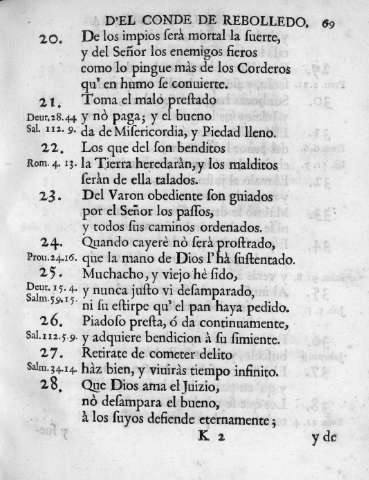 D'EL CONDE DE REBOLLEDO. 69
20. De los impios ſerà mortal la ſuerte,
y del Señor los enemigos fieros
como lo pingue màs de los Corderos
qu'en humo ſe conuierte.
21. Toma el malo preſtado
Deut. 28. 44 y nò paga; y el bueno
Sal. 112. 9. da de Miſericordia, y Piedad lleno.
22. Los que del ſon benditos
Rom. 4. 13. la Tierra heredaràn, y los malditos
ſeràn de ella talados.
23. Del Varon obediente ſon guiados
por el Señor los paſſos,
y todos ſus caminos ordenados.
24. Quando cayerè nò ſerà proſtrado,
Prou. 24. 16. que la mano de Dios l'hà ſuſtentado.
25. Muchacho, y viejo hè ſido,
Deut. 15. 4. y nunca juſto vi deſamparado,
Salm. 59. 15. ni su eſtirpe qu'el pan haya pedido.
26. Piadoſo preſta, ó da continuamente,
Sal. 112. 5. 9. y adquiere bendicion à ſu ſimiente.
27. Retirate de cometer delito
Salm. 34. 14. hàz bien, y viuiràs tiempo infinito.
28. Que Dios ama el Juizio,
nò deſampara el bueno,
à los ſuyos defiende eternamente;
K 2 y de